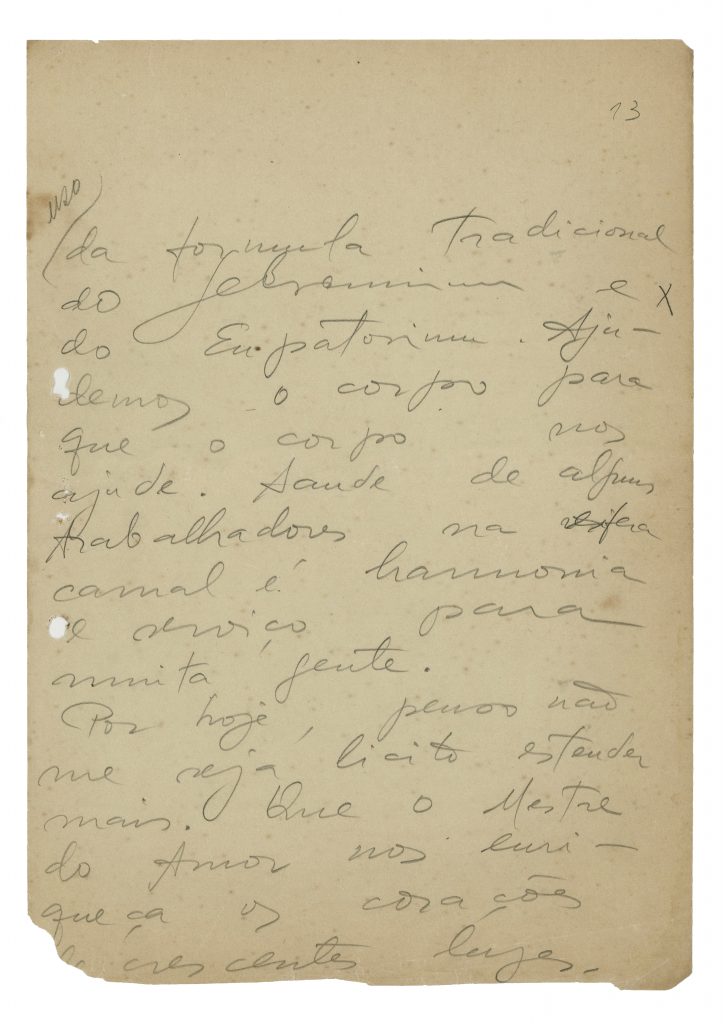 13
uso
da formula tradicional
do Gelseminum e X
do Eupatorium. Aju-
demos o corpo para
que o corpo nos
ajude. Saude de alguns
trabalhadores na esfera
carnal é harmonia
e serviço para
muita gente.
Por hoje, penso não
me seja licito estender
mais. Que o Mestre
do Amor nos enri-
queça os corações
de crescentes luzes.